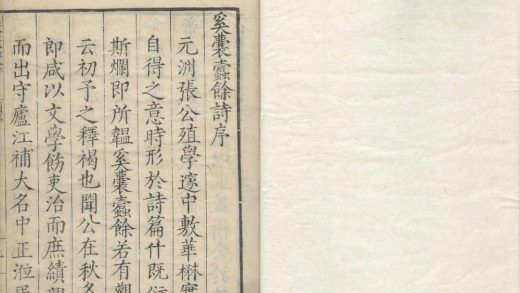 奚囊蠹餘詩序
元洲張公殖學邃中敷華楙實
自得之意時形於詩篇什既衍
斯爛即所韞奚囊蠹餘若有觀
云初予之釋褐也聞公在秋名
即咸以文學飭吏治而庶績
而出守廬江補大名中正涖